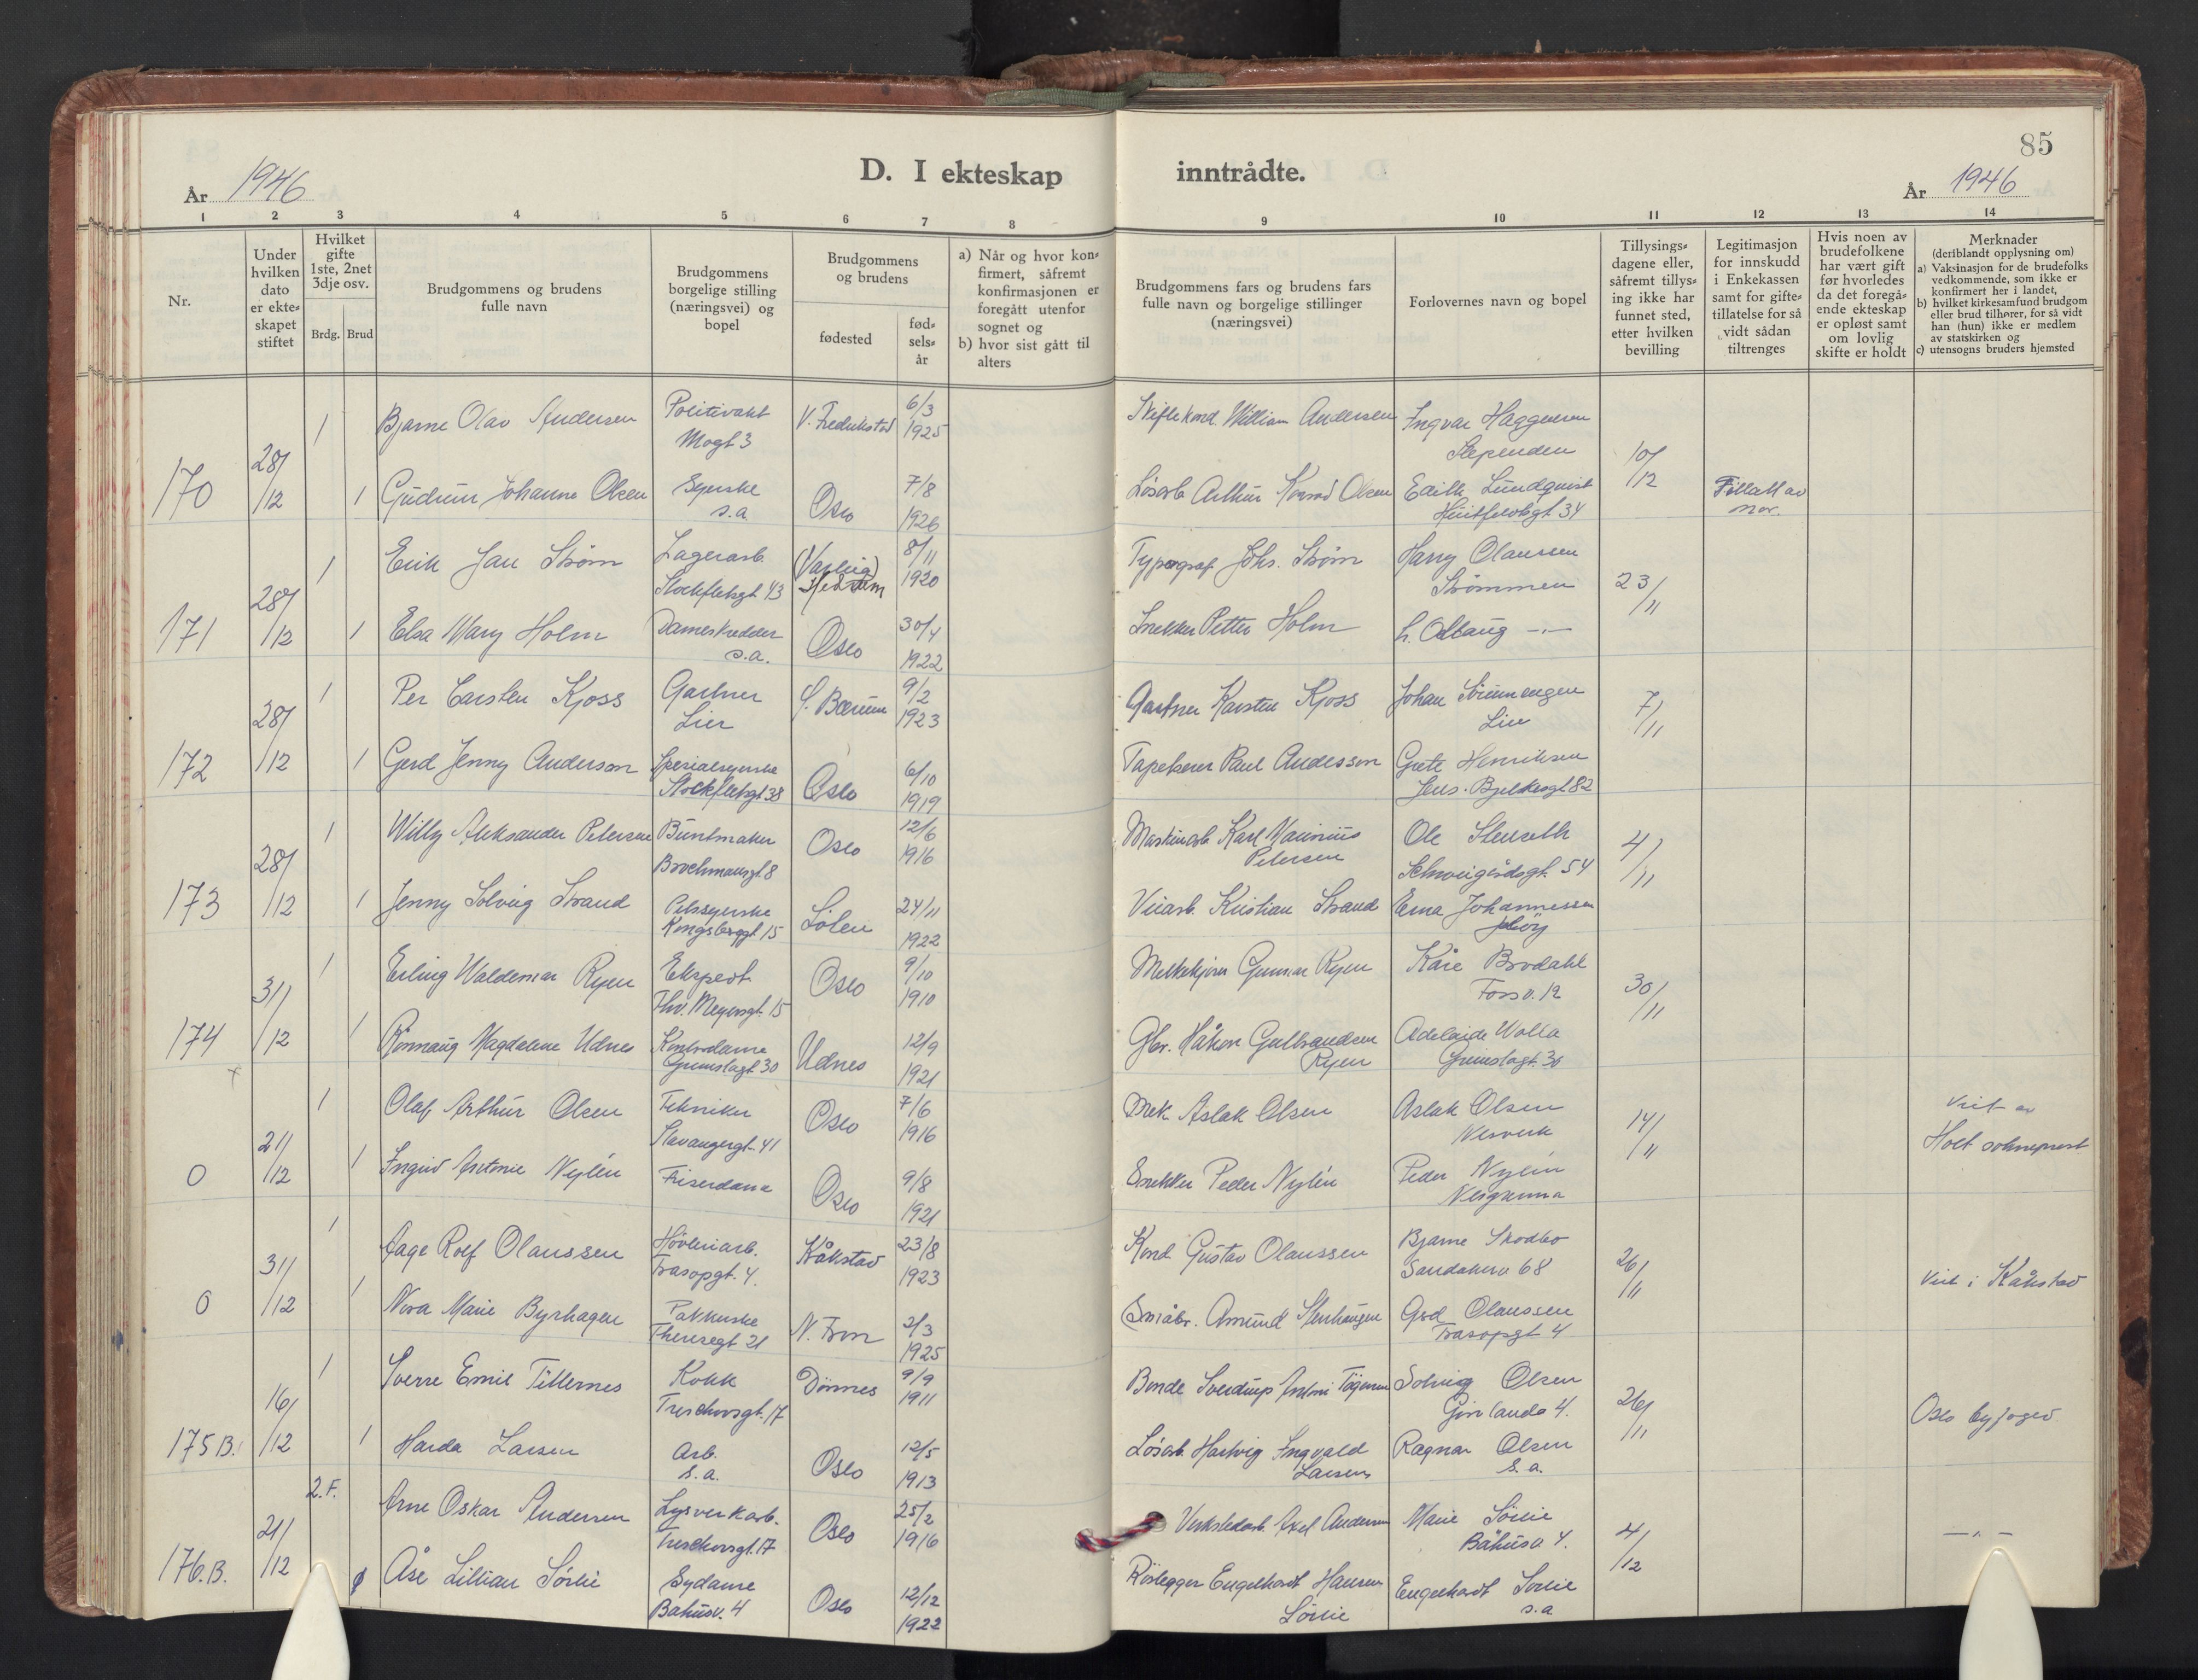 85
D. I ekteskap inntrådte.
År 1946
År 1946
1 2 3 4 5 6 7 8 9 10 11 12 13 14
Nr.
Under hvilken dato er ekte-skapet stiftet
Hvilket gifte 1ste, 2net 3dje osv.
Brdg. Brud
Brudgommens og brudens fulle navn
Brudgommens borgelige stilling (næringsvei) og bopel
Brudgommens og brudens
fødested
fød-sels-år
a) Når og hvor kon-firmert, såfremt konfirmasjonen er foregått utenfor sognet og
b) hvor sist gått til alters
Brudgommens fars og brudens fars fulle navn og borgelige stillinger (næringsvei)
Forlovernes navn og bopel
Tillysings-dagene eller, såfremt tillys-ing ikke har funnet sted, etter hvilken bevilling
Legitimasjon for innskudd i Enkekassen samt for gifte-tillatelse for så vidt sådan tiltrenges
Hvis noen av brudefolkene har vært gift før hvorledes da det foregå-ende ekteskap er opløst samt om lovlig skifte er holdt
Merknader (deriblandt opplysning om)
a) Vaksinasjon for de brudefolks vedkommende, som ikke er konfirmert her i landet,
b) hvilket kirkesamfund brudgom eller brud tilhører, for så vidt han (hun) ikke er medlem av statskirken og
c) utensogns bruders hjemsted
170 28/12
1 Bjarne Olav Andersen Politivakt V. Fredrikstad 6/3 William Andersen Ingvar
Mogt 3 1925 Slependen 10/12
1 Gudrun Johanne Olsen Syerske Oslo 7/8 Løsarb. Arthur Konrad Olsen Edith Lundquist Tillatt av
s.a. 1926 Huitfeldtsgt 34 mor.
171 28/12
1 Erik Jan Strøm Lagerarb. (Varteig) 8/11 Typograf Johs. Strøm Harry Olaussen
Stockfletsgt 43 1920 Strømmen 23/11
1 Elsa Mary Holm Dameskredder Oslo 30/4 Snekker Petter Holm -"-
s.a. 1922
172 28/12
1 Per Carsten Kjoss Gartner Bærum 9/2 Gartner Karsten Kjoss Johan
Lier 1923 Lier 7/11
1 Gerd Jenny Anderson Spesialsyerske Oslo 6/10 Tapetserer Paul Andersson Grete Henriksen
Stockfletsgt 38 1919 Jens Bjelkesgt 82
173 28/12
1 Willy Aleksander Petersen Buntmaker Oslo 12/6 Maskinarb. Karl Ole Stenseth
Brochmansgt. 8 1916 Petersen Schweigårdsgt. 54 4/11
1 Jenny Solveig Strand Pelssyerske Løten 24/11 Kristian Strand Erna Johannessen
Kongsberggt 15 1922
174 31/12
1 Erling Waldemar Ryen Ekspedt. Oslo 9/10 Melkekjører Gunnar Ryen Kåre Brodahl
Thv. Meyersgt. 15 1910 Forsv. 12 30/11
1 Rønnaug Magdalene Udnes Kontordame Udnes 12/9 Gbr. Håkon Gulbrandsen Adelaide Wolla
Grimstagt 30 1921 Ryen Grimstagt. 30
x
0 21/12
1 Olaf Arthur Olsen Tekniker Oslo 7/6 Mek. Aslak Olsen Aslak Olsen Viet av
Stavangergt. 41 1916 Nesverk 14/11 Holt sokneprest
1 Ingrid Antonie Nylén Friserdame Oslo 9/8 Snekker Peder Nylén Peder Nylén
1921
0 31/12
1 Aage Rolf Olaussen Høvleriarb. Kråkstad 23/8 Kond. Gustav Olaussen Bjarne Skodbo
Trasopgt. 4. 1923 Sandakerv 68 26/11 Viet i Kråkstad
1 Nora Marie Byrhagen Pakkerske N. Fron 2/3 Småbr. Amund Stenhaugen Gerd Olaussen
Theresegt 21 1925 Trasopgt 4
175 B. 16/12
1 Sverre Emil Tillernes Kokk Dønnes 9/9 Bonde Sverdrup Solveig Olsen
Treschowsgt. 17 1911 4. 26/11 Oslo byfoged
1 Harda Larsen Arb. Oslo 12/5 Løsarb. Hartvig Ingvald Ragnar Olsen
s.a. 1913 Larsen s.a.
176. B. 21/12
2.F. Arne Oskar Andersen Lysverkarb. Oslo 25/2 Verkstedarb. Axel Andersen Marie Sørlie
Treschowsgt. 17 1916 Båhusv 4. 4/12 -"-
Åse Lillian Sørlie Sydame Oslo 12/12 Rørlegger Engelhardt Hansen Engelhardt Sørlie
Bahusv. 4 1922 Sørlie s.a